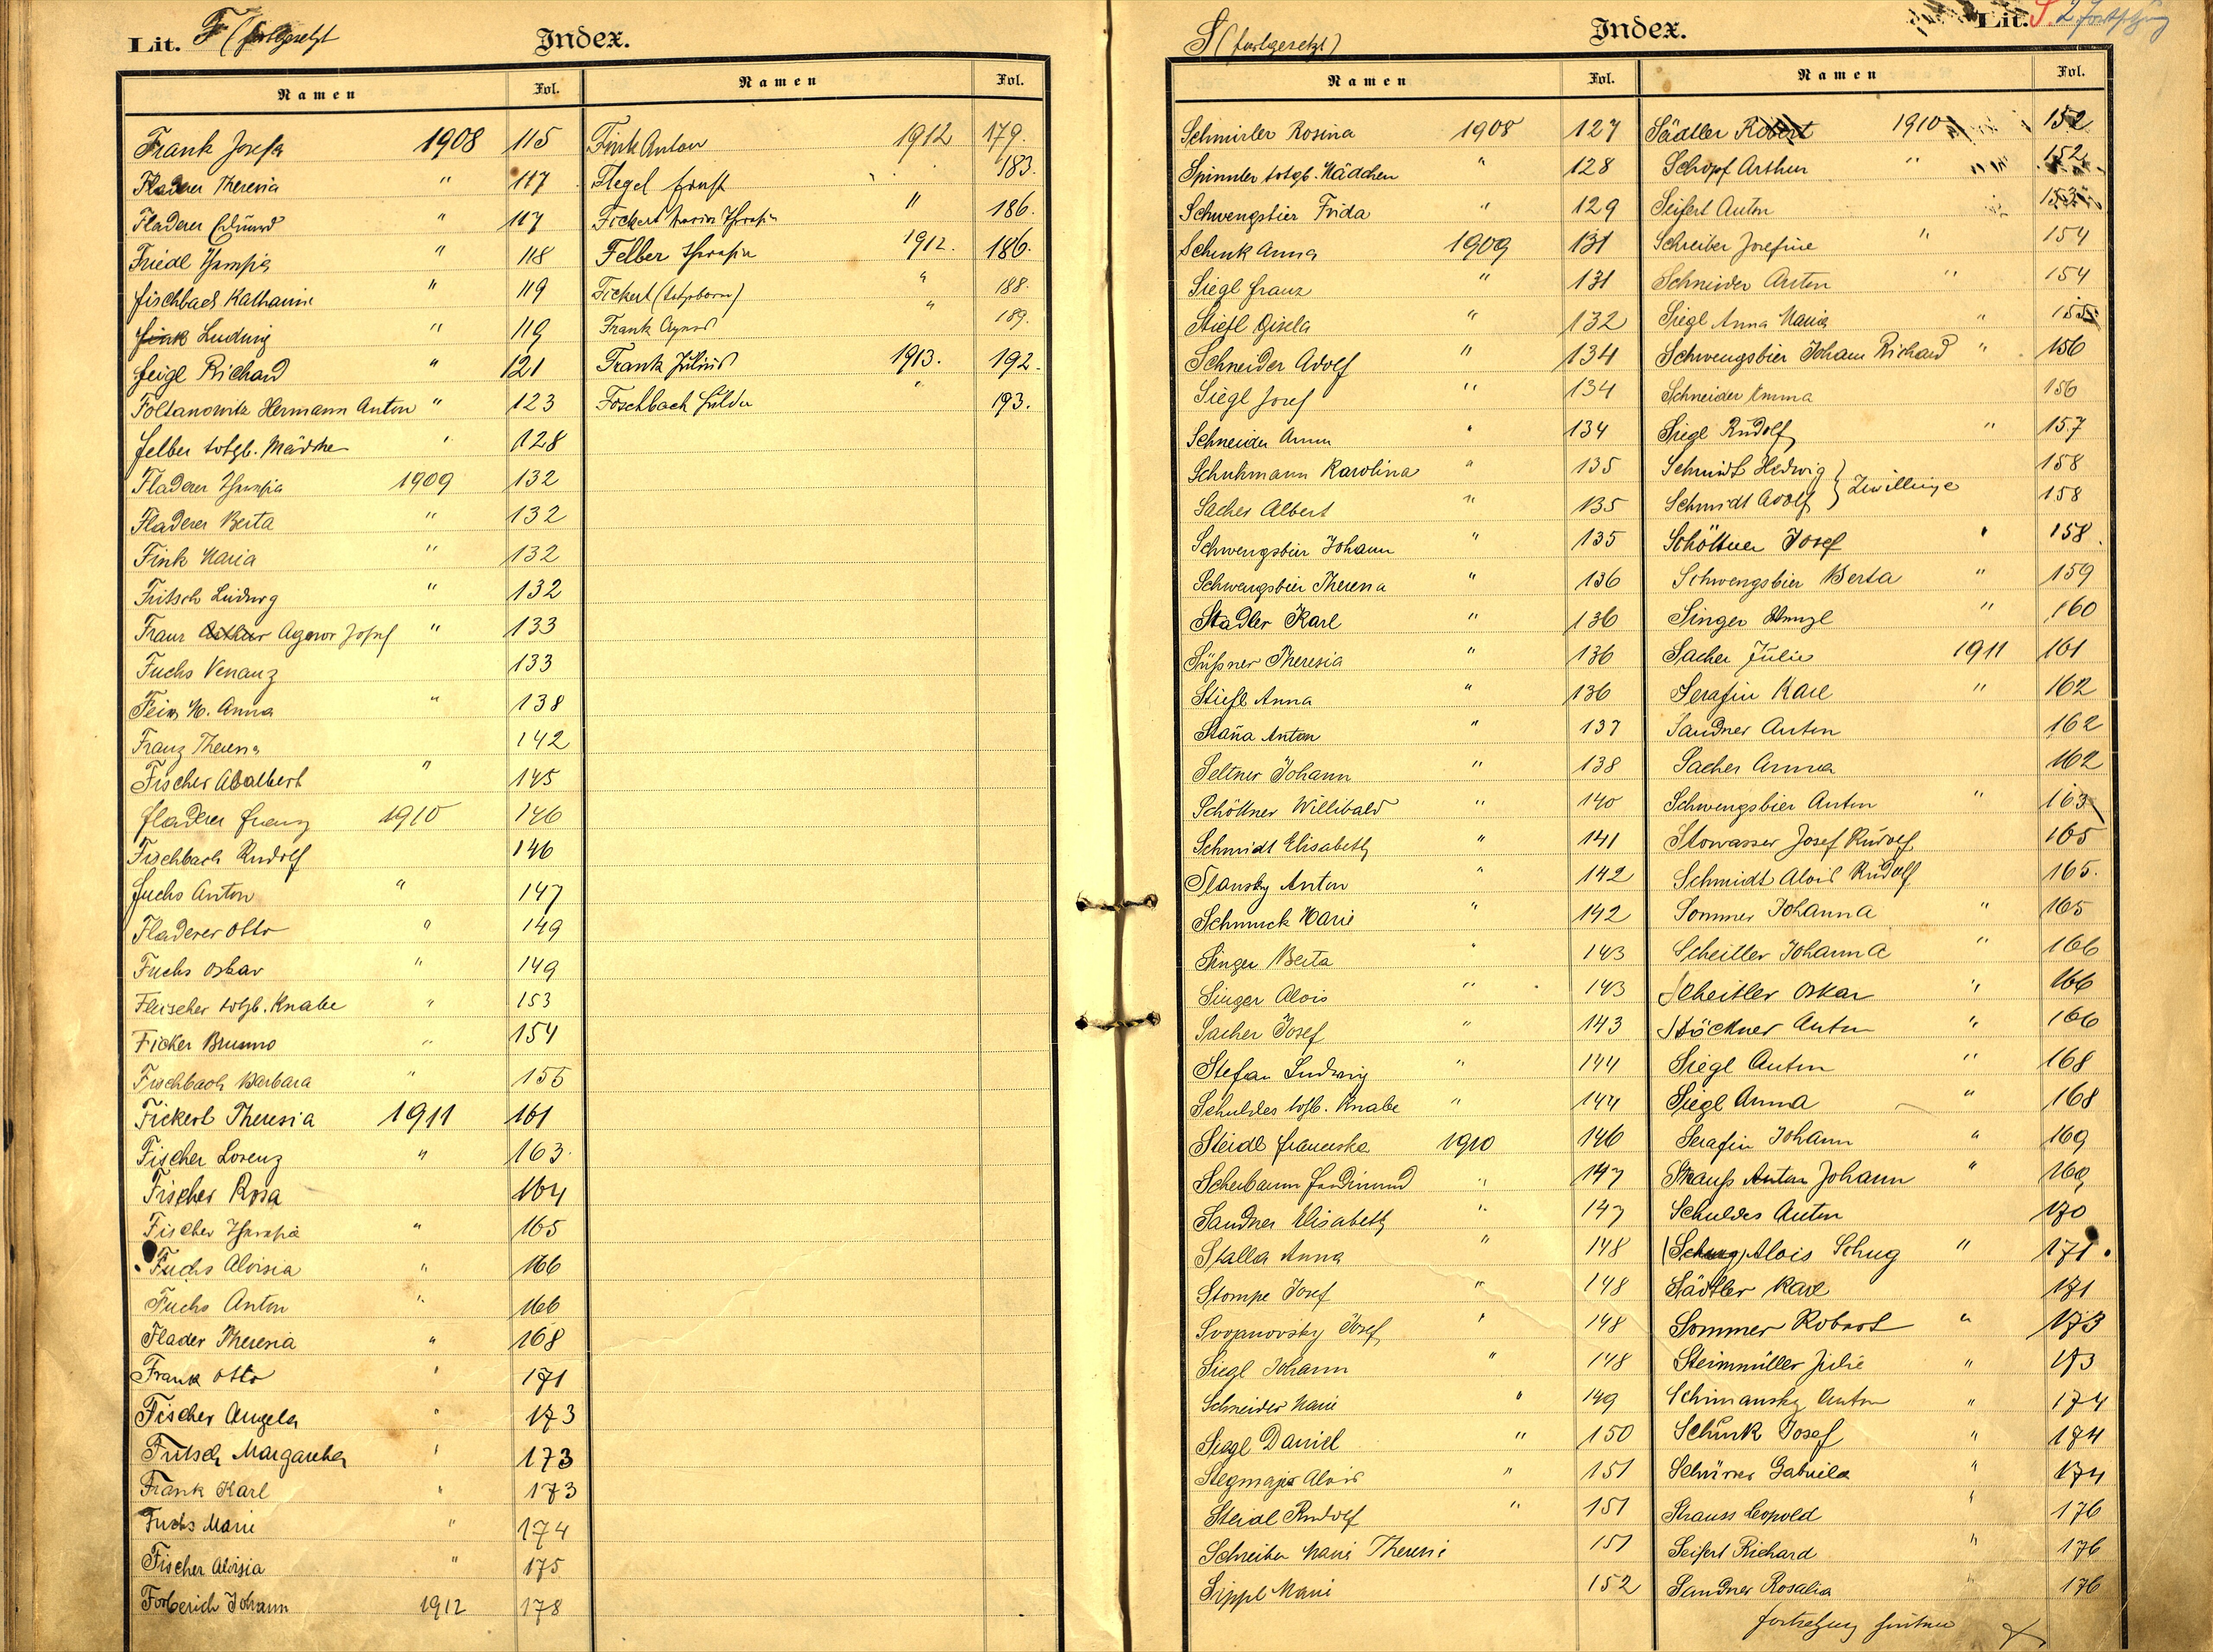 Lit. F (fortgesetzt
Index.
Namen Fol. Namen Fol.
Frank Josefa 1908 115
Fladerer Theresia " 117
Fladerer Edmund " 117
Friedl Theresia " 118
Fischbach Katharina " 119
Fink Ludwig " 119
Feigl Richard " 121
Foltanowitz Hermann Anton " 123
Felber totgb. Mädchen " 128
Fladerer Theresia 1909 132
Fladerer Berta " 132
Fink Maria " 132
Fritsch Ludwig " 132
Franz Arthur Agenor Josef " 133
Fuchs Venanz 133
M. Anna " 138
Franz Theresia 142
Fischer Adalbert " 145
Fladerer Franz 1910 146
Fischbach Rudolf 146
Fuchs Anton " 147
Fladerer Otto " 149
Fuchs Oskar " 149
Fleischer totgb. Knabe " 153
Ficker Brunno " 154
Fischbach Barbara " 155
Fickert Theresia 1911 161
Fischer Lorenz " 163.
Fischer Rosa 164
Fischer Theresia " 165
Fuchs Aloisia " 166
Fuchs Anton " 166
Flader Theresia " 168
Frank Otto " 171
Fischer Angela " 173
Fritsch Margaretha " 173
Frank Karl " 173
Fuchs Marie " 174
Fischer Aloisia " 175
Forberich Johann 1912 178
Fink Anton 1912 179.
Flegel Ernst " 183.
Fickert Theresia " 186.
Felber Theresia 1912. 186.
Fickert (totgeboren) " 188.
Frank Agnes " 189.
Frank Julius 1913. 192.
Foschbach Hilda " 193.
S (fortgesetzt)
Index.
Lit. S. 2 Fortsetzung
Namen Fol. Namen Fol.
Schmirler Rosina 1908 127
Spinnler totgb. Mädchen " 128
Schwengsbier Frida " 129
Schenk Anna 1909 131
Siegl Franz " 131
Stiefl Gisela " 132
Schneider Adolf " 134
Siegl Josef " 134
Schneider Anna " 134
Schuhmann Karolina " 135
Sacher Albert " 135
Schwengsbier Johann " 135
Schwengsbier Theresia " 136
Stadler Karl " 136
Süßner Theresia " 136
Stiefl Anna " 136
Staña Anton " 137
Seltner Johann " 138
Schöttner Willibald " 140
Schmidt Elisabeth " 141
Slansky Anton " 142
Schmuck Marie " 142
Singer Berta " 143
Singer Alois " 143
Sacher Josef " 143
Stefan Ludwig " 144
Schuldes totgb. Knabe " 144
Steidl Franziska 1910 146
Scherbaum Ferdinand " 147
Sandner Elisabeth " 147
Skalla Anna " 148
Stompe Josef " 148
Josef " 148
Siegl Johann " 148
Schneider Marie " 149
Siegl Daniel " 150
Stegmaier Alois " 151
Steidl Rudolf " 151
Schreiber Marie Theresie 151
Sippl Marie 152
Sädtler Robert 1910 152
Schöpf Arthur " 152
Seifert Anton 153
Schreiber Josefine " 154
Schneider Anton " 154
Siegl Anna Maria " 155
Schwengsbier Johann Richard " 156
Schneider Emma 156
Siegl Rudolf " 157
Schmidt Hedwig } Zwillinge 158
Schmidt Adolf } 158
Schöttner Josef " 158.
Schwengsbier Berta " 159
Singer Wenzl " 160
Sacher Julie 1911 161
Serafin Karl " 162
Sandner Anton 162
Sacher Anna 162
Schwengsbier Anton " 163
Stowasser Josef Rudolf 165
Schmidt Alois Rudolf 165.
Sommer Johanna " 165
Scheitler Johanna " 166
Scheitler Oskar " 166
Stöckner Anton " 166
Siegl Anton " 168
Siegl Anna " 168
Serafin Johann " 169
Strauß Anton Johann " 169
Schuldes Anton 170
(Schug) Alois Schug " 171.
Städtler Karl 171
Sommer Robert " 173
Steinmüller Julie " 173
Schimansky Anton " 174
Schunk Josef " 174
Schürrer Gabriela " 174
Strauss Leopold " 176
Seifert Richard " 176
Sandner Rosalia " 176
Fortsetzung hinten